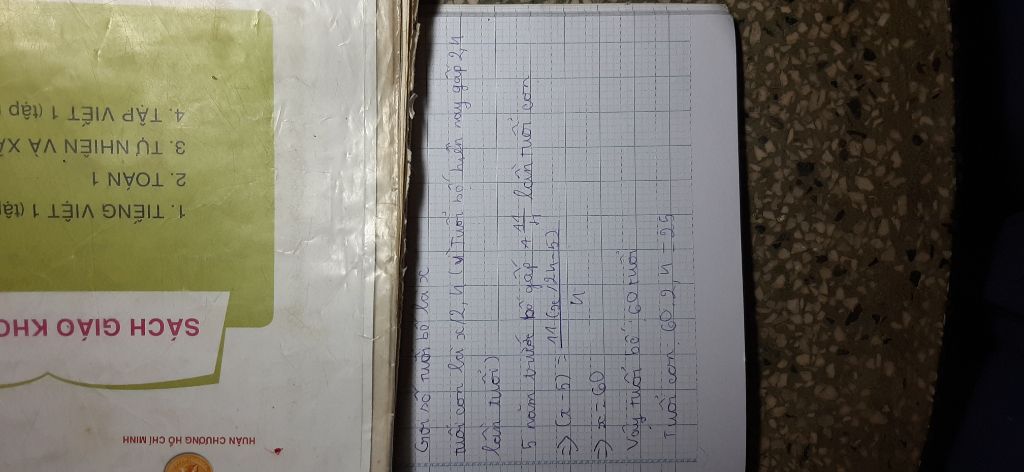 Gọi số tuổi bố là x
tuổi con là x/2,4 (vì tuổi bố hiện nay gấp 2,4
lần tuổi)
5 năm trước bố gấp 11/4 lần tuổi con
=> (x - 5) = 11(x/2,4 - 5)/4
=> x = 60
Vậy tuổi bố: 60 tuổi
Tuổi con: 60:2,4 = 25
HUÂN CHƯƠNG HỒ CHÍ MINH
SÁCH GIÁO KHO
1. TIẾNG VIỆT 1 (tập
2. TOÁN 1
3. TỰ NHIÊN VÀ XÃ
4. TẬP VIẾT 1 (tập